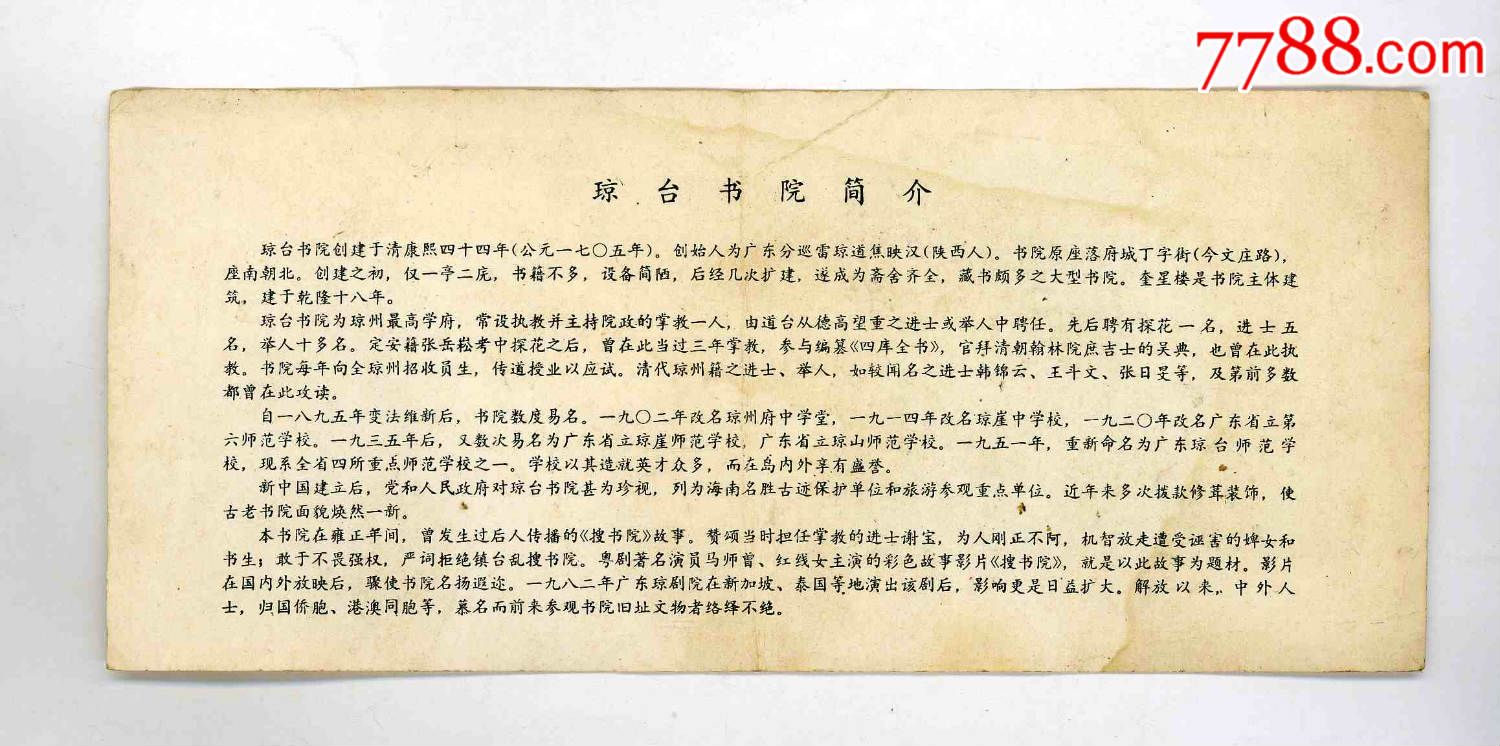 7788.com
琼台书院简介
琼台书院创建于清康熙四十四年(公元一七〇五年)。创始人为广东分巡雷琼道焦映汉(陕西人)。书院原座落府城丁字街(今文庄路),
座南朝北。创建之初,仅一亭二庑,书籍不多,设备简陋,后经几次扩建,遂成为斋舍齐全,藏书颇多之大型书院。奎星楼是书院主体建
筑,建于乾隆十八年。
琼台书院为琼州最高学府,常设执教并主持院政的掌教一人,由道台从德高望重之进士或举人中聘任。先后聘有探花一名,进士五
名,举人十多名。定安籍张岳崧考中探花之后,曾在此当过三年掌教,参与编纂《四库全书》,官拜清朝翰林院庶吉士的吴典,也曾在此执
教。书院每年向全琼州招收员生,传道授业以应试。清代琼州籍之进士、举人,如较闻名之进士韩锦云、王斗文、张日旻等,及第前多数
都曾在此攻读。
自一八九五年变法维新后,书院数度易名。一九〇二年改名琼州府中学堂,一九一四年改名琼崖中学校,一九二〇年改名广东省立第
六师范学校。一九三五年后,又数次易名为广东省立琼崖师范学校,广东省立琼山师范学校。一九五一年,重新命名为广东琼台师范学
校,现系全省四所重点师范学校之一。学校以其造就英才众多,而在岛内外享有盛誉。
新中国建立后,党和人民政府对琼台书院甚为珍视,列为海南名胜古迹保护单位和旅游参观重点单位。近年来多次拨款修葺装饰,使
古老书院面貌焕然一新。
本书院在雍正年间,曾发生过后人传播的《搜书院》故事。赞颂当时担任掌教的进士谢宝,为人刚正不阿,机智放走遭受诬害的婢女和
书生;敢于不畏强权,严词拒绝镇台乱搜书院。粤剧著名演员马师曾、红线女主演的彩色故事影片《搜书院》,就是以此故事为题材。影片
在国内外放映后,骤使书院名扬遐迩。一九八二年广东琼剧院在新加坡、泰国等地演出该剧后,影响更是日益扩大。解放以来,中外人
士,归国侨胞、港澳同胞等,慕名而前来参观书院旧址文物者络绎不绝。